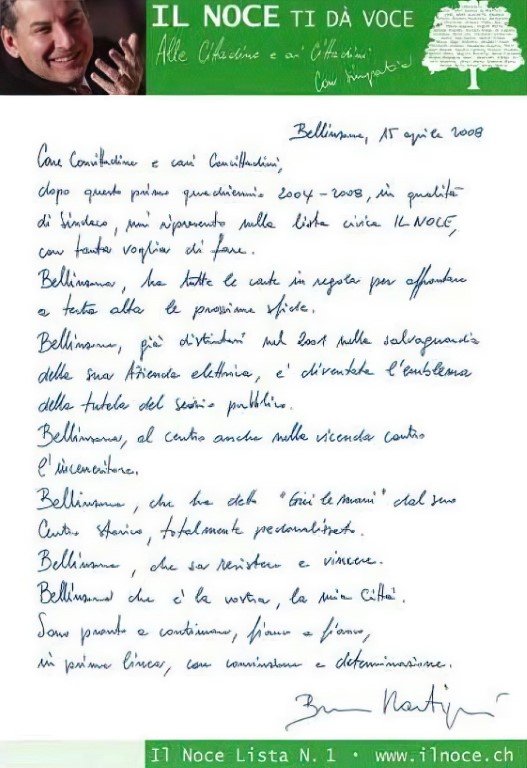 IL NOCE TI DÀ VOCE
Alle Cittadine e ai Cittadini
Con simpatia
Bellinzona, 15 aprile 2008
Care Concittadine e cari Concittadini,
dopo questo primo quadriennio 2004-2008, in qualità
di Sindaco, mi ripresento nella lista civica IL NOCE,
con tanta voglia di fare.
Bellinzona, ha tutte le carte in regola per affrontare
a testa alta le prossime sfide.
Bellinzona, già distintasi nel 2001 nella salvaguardia
della sua Azienda elettrica, è diventata l'emblema
della tutela del servizio pubblico.
Bellinzona, al centro anche nella vicenda contro
l'inceneritore.
Bellinzona, che ha detto "Giù le mani" dal suo
Centro storico, totalmente pedonalizzato.
Bellinzona, che sa resistere e vincere.
Bellinzona che è la vostra, la mia Città.
Sono pronto a continuare, fianco a fianco,
in prima linea, con convinzione e determinazione.
Il Noce Lista N. 1 • www.ilnoce.ch